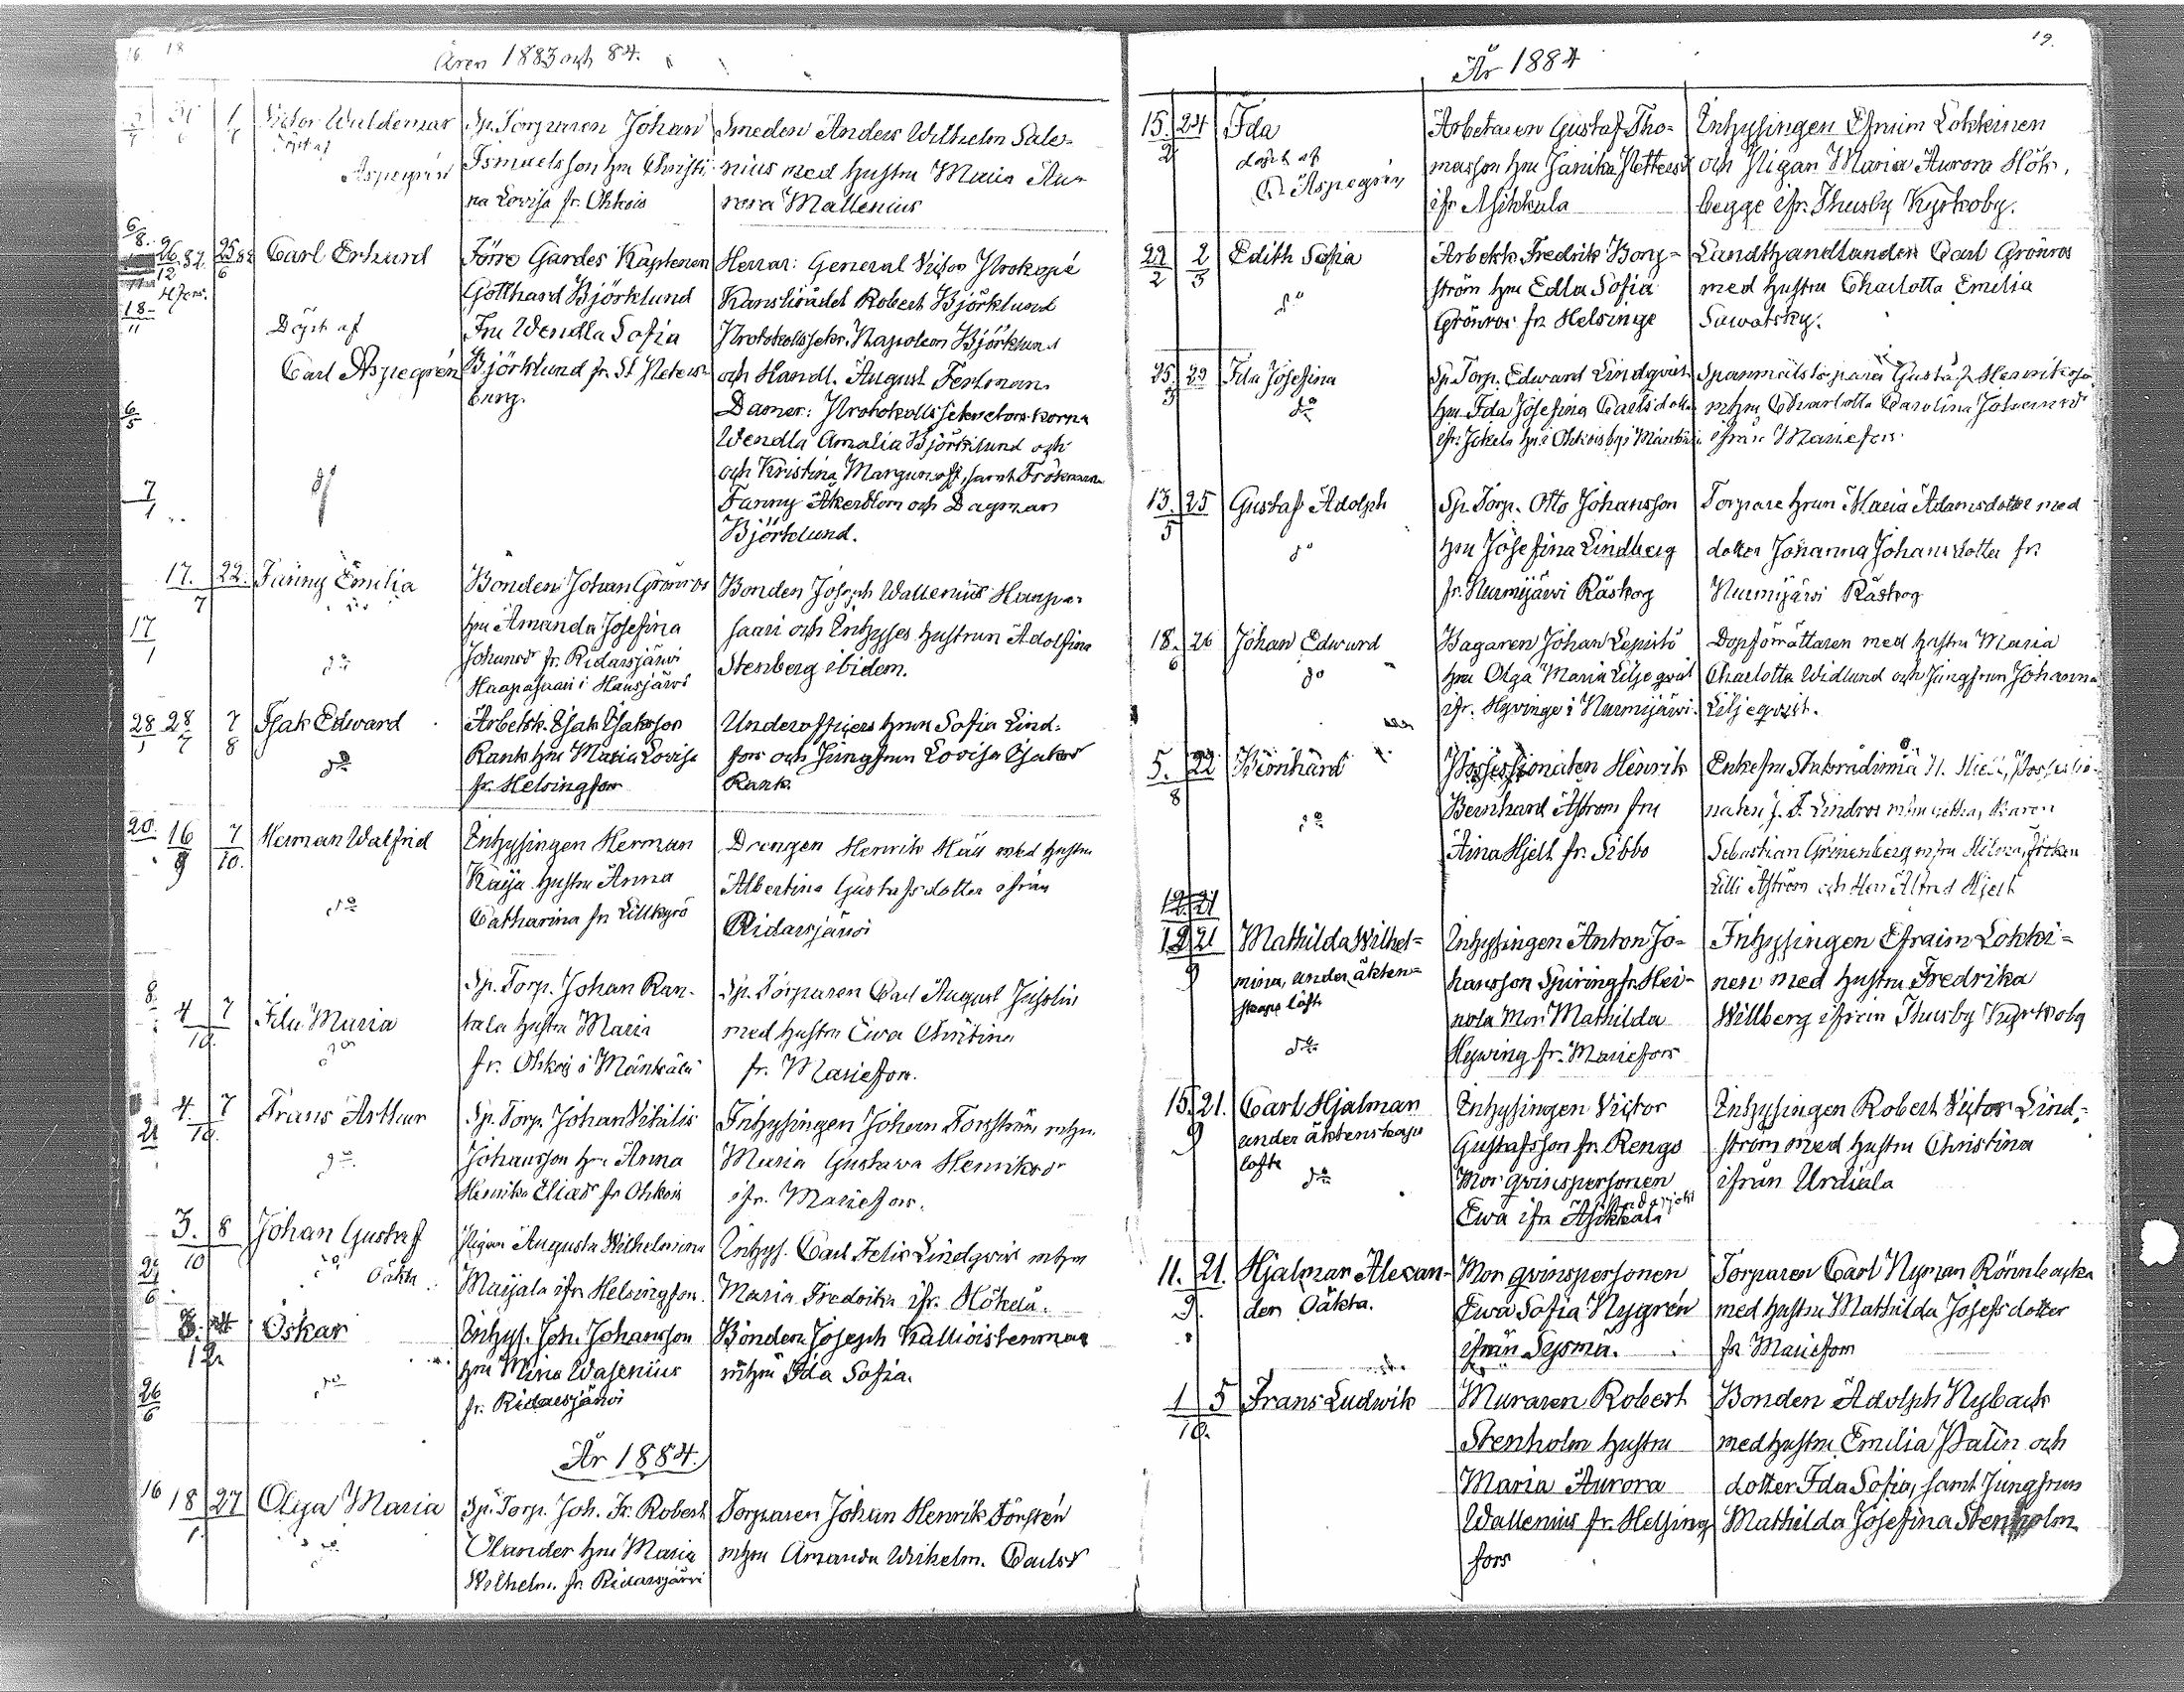 18
Åren 1883 och 84.
Victor Waldemar
döpt af
Aspegrén
Sp. Torparen Johan
Ismaelsson hru Christi-
na Lovisa fr. Ohkois
Smeden Anders Wilhelm Sale-
nius med hustru Maria Au-
rora Mallenius
Carl Erhard
Döpt af
Carl Aspegrén
Förre Gardes Kaptenen
Gotthard Björklund
Fru Wendla Sofia
Björklund fr. St Peters-
burg.
Herrar: General Victor Prokopé
Kanslirådet Robert Björklund
Protokollsekr. Napoleon Björklund
och Handl. August
Damer: Protokollssekreterskorna
Wendla Amalia Björklund och
och Kristina samt Fröknarna
Fanny Åkerblom och Dagmar
Björklund.
17. 22.
7
Fanny Emilia
do
Bonden Johan Grönros
hru Amanda Josefina
Johansdr fr. Ridasjärwi
Haapasaari i Hausjärwi
Bonden Joseph Wallenius Haapa-
saari och Inhyses hustrun Adolfina
Stenberg ibidem.
28 7
7 8
Isak Edward
do
Arbetsk. Isak Isaksson
Rank hru Maria Lovisa
fr. Helsingfors
Underofficers hrun Sofia Lind-
fors och Jungfrun Lovisa Isaksd
Rank.
16 7
9 10.
Herman Walfrid
do
Inhysingen Herman
Kaija hustru Anna
Catharina fr Lillkyrö
Drengen Henrik Häll med hustru
Albertina Gustafsdotter ifrån
Ridasjärwi
4 7
10.
Ida Maria
do
Sp. Torp. Johan Ran-
tala hustru Maria
fr. Ohkois i Mäntsälä
Sp. Torparen Carl August
med hustru Ewa Christina
fr. Mariefors.
4. 7
10.
Frans Arthur
do
Sp. Torp. Johan Vitalis
Johansson hru Anna
Henrika Eliasd fr Ohkois
Inhysingen Johan Forsström mhru
Maria Gustawa Henriksdr
ifr. Mariefors.
3. 8
10
Johan Gustaf
do oäkta
Pigan Augusta Wilhelmina
Maijala ifr Helsingfors.
Inhys. Carl Felix Lindqvist mhru
Maria Fredrika ifr. Hökelä.
12
Oskar
do
Inhys. Joh. Johansson
hru Mina Wasenius
fr. Ridasjärwi
Bonden Joseph Kallioistenmaa
mhru Ida Sofia.
År 1884.
18 27
1.
Olga Maria
do
Sp. Torp. Joh. Fr. Robert
Olander hru Maria
Wilhelm. fr. Ridasjärwi
Torparen Johan Henrik Forstén
mhru Amanda Wilhelm. Carlsd
19.
År 1884
15. 24
2
Ida
döpt af
C. Aspegrén
Arbetaren Gustaf Tho-
masson hru Janika Pettersd
ifr Asikkala
Inhysingen Efraim Lokkinen
och Pigan Maria Aurora Hök,
begge ifr. Thusby Kyrkoby.
29 2
2 3
Edith Sofia
do
Arbetsk Fredrik Borg-
ström hru Edla Sofia
Grönros fr. Helsinge
Landthandlanden Carl Grönros
med hustru Charlotta Emilia
Sawatsky.
25. 29
3
Ida Josefina
do
Sp. Torp. Edward Lindqvist
hru Ida Josefina Carlsdotter
ifr. Jokela
Spanmålstorparen Gustaf Henriksson
mhru Charlotta Carolina Johansdr
ifrån Mariefors
13. 25
5
Gustaf Adolph
do
Sp. Torp. Otto Johansson
hru Josefina Lindberg
fr. Nurmijärwi Råskog
Torpare hrun Maria Adamsdotter med
dotter Johanna Johansdotter fr.
Nurmijärwi Råskog
18. 26
6
Johan Edward
do
Bagaren Johan Lepistö
hru Olga Maria Liljeqvist
ifr. Hyvinge i Nurmijärwi.
Dopförrättaren med hustru Maria
Charlotta Widlund och Jungfrun Johanna
Liljeqvist.
5. 22
8
Bernhard
do
Possessionaten Henrik
Bernhard Åström fru
Aina Hjelt fr. Sibbo
Enkefru Statsrådinna H. Hjelt, Possessio-
naten J. F. Lindros mfru Baron
Sebastian Gripenberg mfru Hilma, Fröken
Lilli Åström och Herr Alfred Hjelt
12. 21
12 21
9
Mathilda Wilhel-
mina, under äkten-
skaps löfte
do
Inhysingen Anton Jo-
hansson Spiring fr. Hei-
nola Mor Mathilda
Hywing fr. Mariefors
Inhysingen Efraim Lokki-
nen med hustru Fredrika
Willberg ifrån Thusby Kyrkoby
15. 21.
9
Carl Hjalmar
under äktenskaps
löfte
do
Inhysingen Victor
Gustafsson fr. Rengo
Mor qvinspersonen
Ewa ifr Asikkala
Inhysingen Robert Victor Lind-
ström med hustru Christina
ifrån Urdiala
11. 21.
9.
Hjalmar Alexan-
der Oäkta.
Mor qvinspersonen
Ewa Sofia Nygrén
ifrån Sysmä.
Torparen Carl Nyman Rönnbacka
med hustru Mathilda Josefsdotter
fr Mariefors
1 5
10.
Frans Ludwik
Muraren Robert
Stenholm hustru
Maria Aurora
Wallenius fr. Helsing
fors
Bonden Adolph Nyback
med hustru Emilia Palin och
dotter Ida Sofia, samt Jungfrun
Mathilda Josefina Stenholm